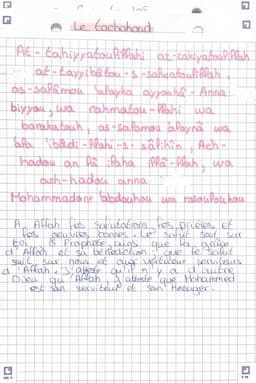 Le tachahoud
At-tahiyyatoulillahi az-zakiyatoulillah
at-tayyibâtou-s-salwatoulillah,
as-salâmou 'alayka ayyouhâ-Anna
biyyou, wa rahmatou-llahi wa
barakatouh, as-salamou 'alaynâ wa
'ala 'ibâdi-llahi-s-sâlihîn, Ach-
hadou an lâ ilaha illâ-llah, wa
ach-hadou anna
Mohammadane 'abdouhou wa rasoulouhou
A Allah les salutations, les prières et
les œuvres bonnes, Le salut soit sur
toi ô Prophète, ainsi que la grâce
d'Allah et sa bénédiction, que le salut
soit sur nous et aux serviteurs
d'Allah, J'atteste qu'il n'y a d'autre
Dieu qu'Allah J'atteste que Mohammed
est son serviteur et son Messager.